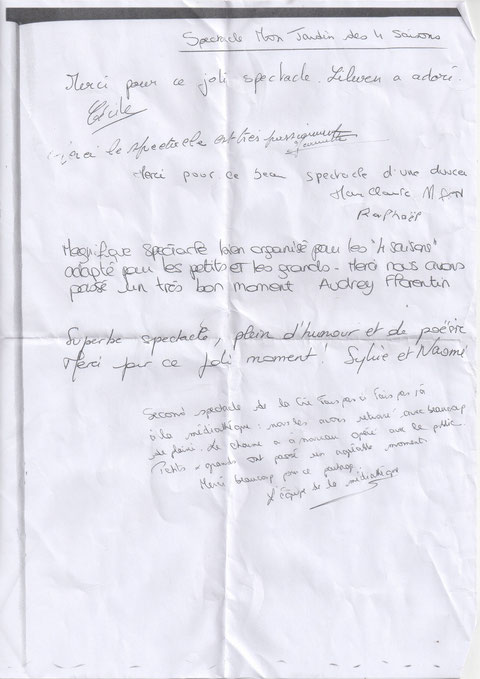 Spectacle Mon Jardin des 4 saisons
Merci pour ce joli spectacle. Lilwen a adoré.
Cécile
le spectacle est très
Merci pour ce beau spectacle d'une
Raphaël
Magnifique spectacle bien organisé pour les "4 saisons"
adapté pour les petits et les grands - Merci nous avons
passé un très bon moment Audrey Florentin
Superbe spectacle, plein d'humour et de poésie
Merci pour ce joli moment! Sylvie et Naomi
Second spectacle de la Cie Fais pas ci Fais pas ça
à la médiathèque : nous les avons retrouvé avec beaucoup
de plaisir. Le charme a à nouveau opéré avec le public.
Petits & grands ont passé un agréable moment.
Merci beaucoup pour ce partage.
L'équipe de la médiathèque